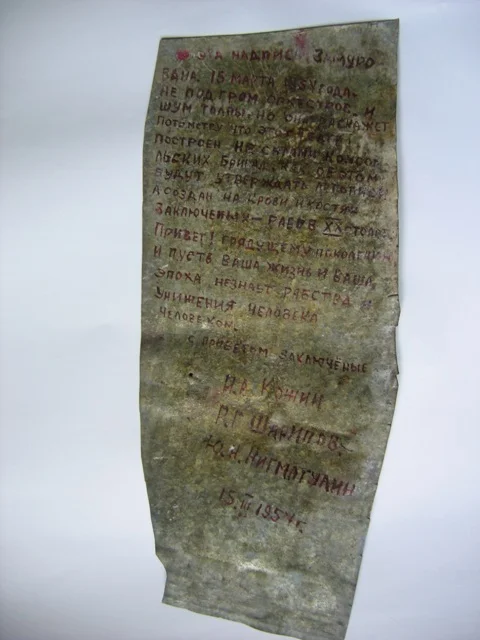 ЭТА НАДПИСЬ ЗАМУРО
ВАНА 15 МАРТА 1954 ГОДА.
НЕ ПОД ГРОМ ОРКЕСТРОВ И
ШУМ ТОЛПЫ. НО ОНА РАССКАЖЕТ
ПОТОМСТВУ ЧТО ЭТОТ
ПОСТРОЕН НЕ СИЛАМИ КОМСОМО
ЛЬСКИХ БРИГАД ОБ ЭТОМ
БУДУТ УТВЕРЖДАТЬ ЛЕТОПИСИ
А СОЗДАН НА КРОВИ И КОСТЯХ
ЗАКЛЮЧЕНЫХ — РАБОВ XX
ПРИВЕТ! ГРЯДУЩЕМУ ПОКОЛЕНИЮ
И ПУСТЬ ВАША ЖИЗНЬ И ВАША
ЭПОХА НЕЗНАЕТ РАБСТВА И
УНИЖЕНИЯ ЧЕЛОВЕКА
ЧЕЛОВЕКОМ.
С ПРИВЕТОМ ЗАКЛЮЧЁНЫЕ
КОЖИН
Р.Г ШАРИПОВ.
Ю.Н. НИГМАТУЛИН
15.III 1954г.